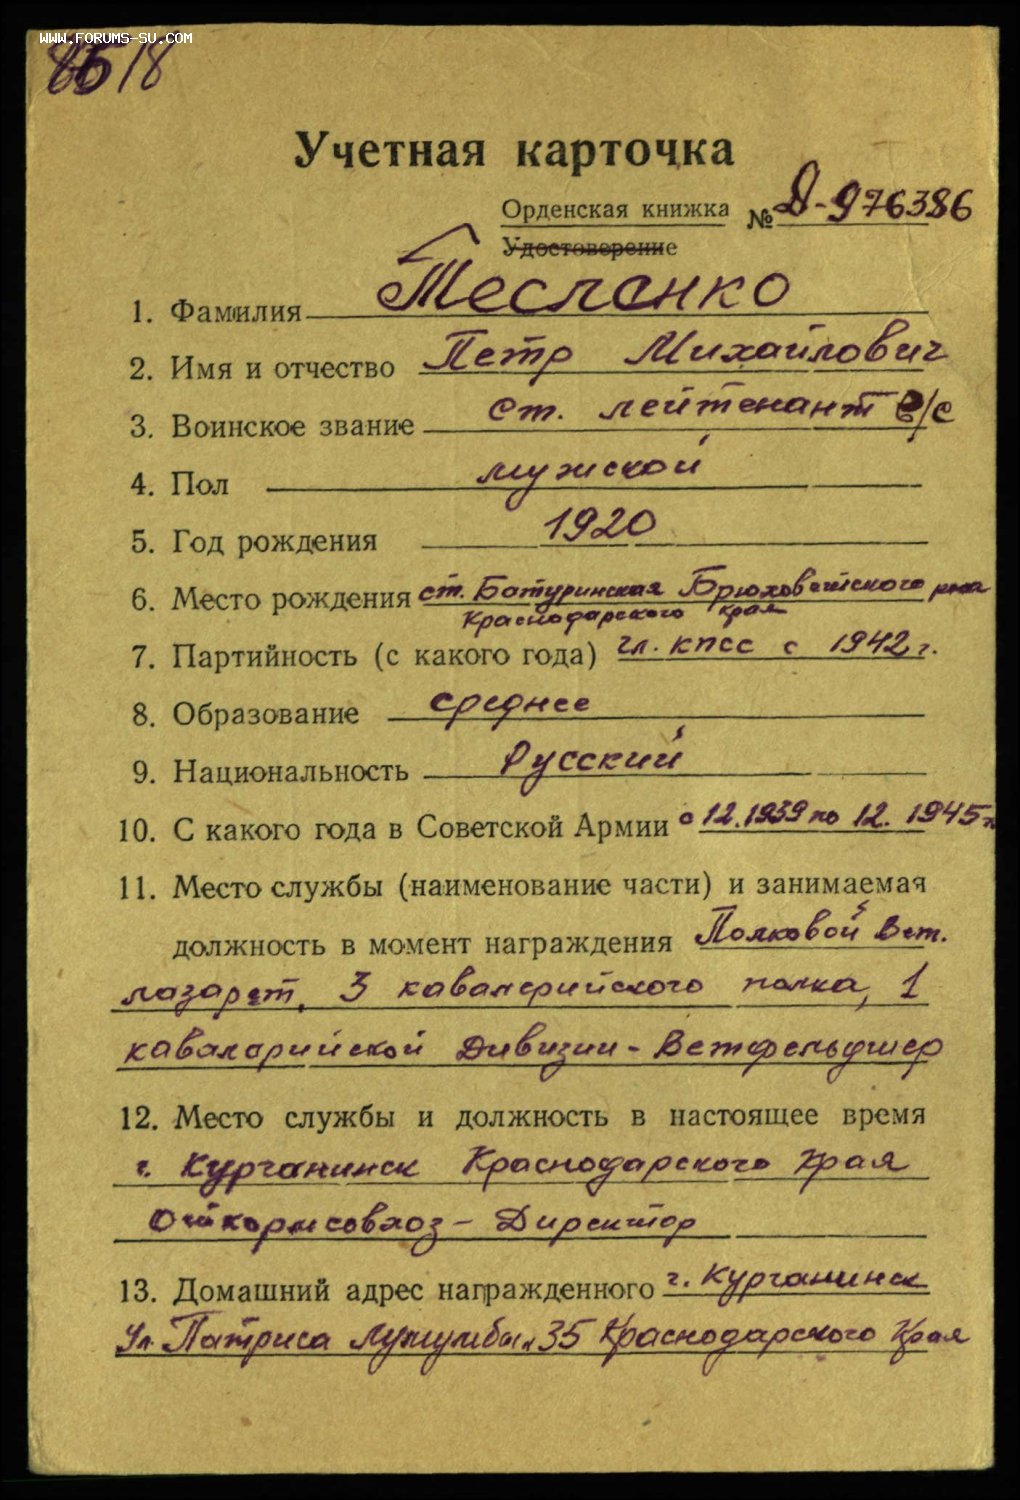 WWW.FORUMS-SU.COM
Учетная карточка
Орденская книжка № Д-976386
Удостоверение
1. Фамилия Тесленко
2. Имя и отчество Петр Михайлович
3. Воинское звание ст. лейтенант в/с
4. Пол мужской
5. Год рождения 1920
6. Место рождения ст. Батуринская Брюховетского р-на
Краснодарского края
7. Партийность (с какого года) чл. КПСС с 1942 г.
8. Образование среднее
9. Национальность Русский
10. С какого года в Советской Армии с 12.1939 по 12.1945
11. Место службы (наименование части) и занимаемая
должность в момент награждения Полковой Вет.
лазарет, 3 кавалерийского полка, 1
кавалерийской Дивизии - Ветфельдшер
12. Место службы и должность в настоящее время
г. Курганинск Краснодарского Края
Откормсовхоз - Директор
13. Домашний адрес награжденного г. Курганинск
ул Патриса Лумумбы 35 Краснодарского Края